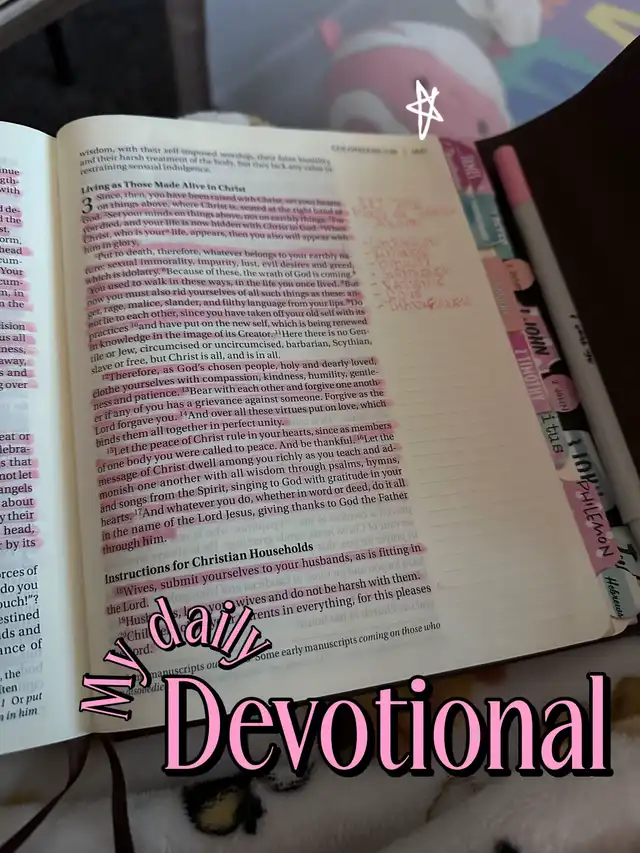 nue
gth-
with
d de-
d the
st.
orm,
head
cum-
Your
cum-
m, in
n the
cision
us all
ness,
away,
s and
g over
eat or
lebra-
s that
not let
angels
about
y their
head,
r by its
orces of
do you
ouch!"?
estined
nds and
ance of
, the
ften
1 Or put
n in him
wisdom, with their self-imposed worship, their false humility
and their harsh treatment of the body, but they lack any value in
restraining sensual indulgence.
Living as Those Made Alive in Christ
3 Since, then, you have been raised with Christ, set your hearts
on things above, where Christ is, seated at the right hand of
God. 2Set your minds on things above, not on earthly things. 3For
you died, and your life is now hidden with Christ in God. 4When
Christ, who is your life, appears, then you also will appear with
him in glory.
5Put to death, therefore, whatever belongs to your earthly na-
ture: sexual immorality, impurity, lust, evil desires and greed,
which is idolatry. 6Because of these, the wrath of God is coming.
7You used to walk in these ways, in the life you once lived. 8But
now you must also rid yourselves of all such things as these: an-
ger, rage, malice, slander, and filthy language from your lips. 9Do
not lie to each other, since you have taken off your old self with its
practices 10and have put on the new self, which is being renewed
in knowledge in the image of its Creator. 11Here there is no Gen-
tile or Jew, circumcised or uncircumcised, barbarian, Scythian,
slave or free, but Christ is all, and is in all.
12Therefore, as God's chosen people, holy and dearly loved,
clothe yourselves with compassion, kindness, humility, gentle-
ness and patience. 13Bear with each other and forgive one anoth-
er if any of you has a grievance against someone. Forgive as the
Lord forgave you. 14And over all these virtues put on love, which
binds them all together in perfect unity.
15Let the peace of Christ rule in your hearts, since as members
of one body you were called to peace. And be thankful. 16Let the
message of Christ dwell among you richly as you teach and ad-
monish one another with all wisdom through psalms, hymns,
and songs from the Spirit, singing to God with gratitude in your
hearts. 17And whatever you do, whether in word or deed, do it all
in the name of the Lord Jesus, giving thanks to God the Father
through him.
Instructions for Christian Households
18Wives, submit yourselves to your husbands, as is fitting in
the Lord.
19Husbands, your wives and do not be harsh with them.
20Chil rents in everything, for this pleases
ord.
manuscripts Some early manuscripts coming on those who
disobedie
JOHN
1 TIMOTHY
itus
PHILEMON
Hebrews
My daily
Devotional